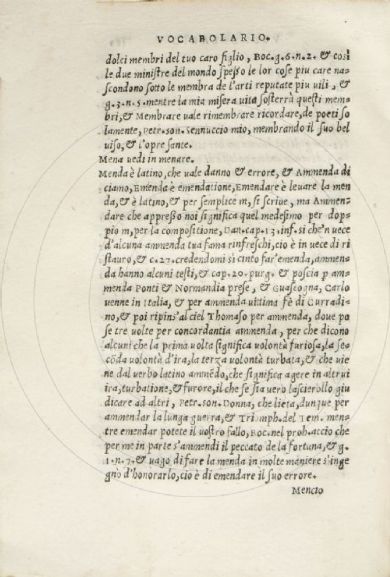 VOCABOLARIO.
dolci membri del tuo caro figlio, BOC.g.6.n.2. & cosi
le due ministre del mondo spesso le lor cose piu care na
scondono sotto le membra de l'arti reputate piu uili, &
g.3.n.5. mentre la mia misera uita sosterrà questi mem
bri, & Membrare uale rimembrare ricordare, de poeti so
lamente, Petr.son. Sennuccio mio, membrando il suo bel
uiso, & l'opre sante.
Mena uedi in menare.
Menda è latino, che uale danno & errore, & Ammenda di
ciamo, Emenda è emendatione, Emendare è leuare la men
da, & è latino, & per semplice m, si scriue, ma Ammen-
dare che appresso noi significa quel medesimo per dop-
pio m, per la compositione, Dan.cap.13.inf. si che'n uece
d'alcuna ammenda tua fama rinfreschi, cio è in uece di ri
stauro, & c.27. credendomi si cinto far'emenda, ammen-
da hanno alcuni testi, & cap.20.purg. & poscia p amm
menda Ponti & Normandia prese, & Guascogna, Carlo
uenne in Italia, & per ammenda uittima fè di Curradi-
no, & poi ripins'al ciel Thomaso per ammenda, doue po
se tre volte per concordantia ammenda, per che dicono
alcuni che la prima volta significa volontà furiosa, la se-
cõda volontà d'ira, la terza volontà turbata, & che uie
ne dal verbo latino ammẽdo, che significa agere in altrui
ira, turbatione, & furore, il che se sia vero lascierollo giu
dicare ad altri, Petr.son. Donna, che lieta, dunque per
ammendar la lunga guerra, & Triomph.del Tem. men-
tre emendar potete il uostro fallo, Boc.nel proh. accio che
per me in parte s'ammendi il peccato de la fortuna, & g.
1.n.7. & uago di fare la menda in molte maniere s'inge
gnò d'honorarlo, cio è di emendare il suo errore.
Mencio